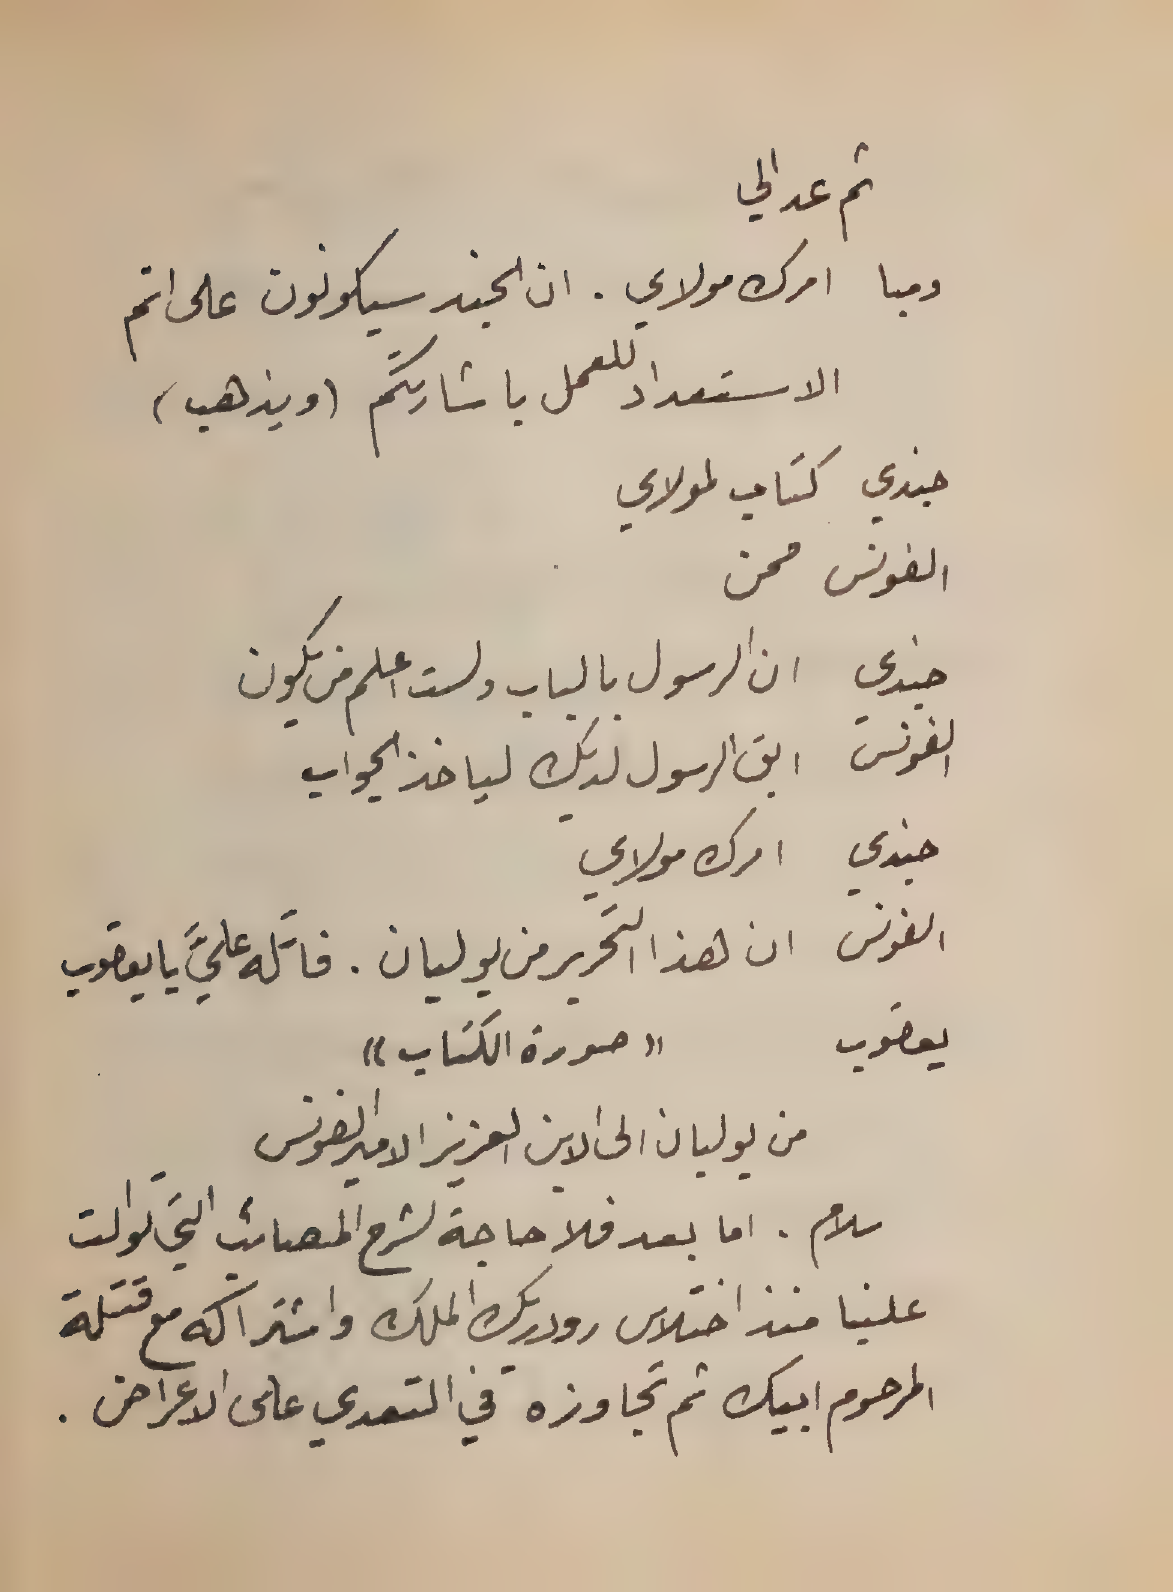 ثم عد الي
ومبا امرك مولاي . ان الجند سيكونون على اتم
الاستعداد للعمل باشارتكم (ويذهب)
جندي كتاب لمولاي
الفونس ممن
جندي ان الرسول بالباب ولست اعلم من يكون
الفونس ابق الرسول لديك لياخذ الجواب
جندي امرك مولاي
الفونس ان هذا التحرير من يوليان . فاتله عليَّ يا يعقوب
يعقوب «صورة الكتاب»
من يوليان الى الابن العزيز الامير الفونس
سلام . اما بعد فلا حاجة لشرح المصائب التي توالت
علينا منذ اختلاس رودريك الملك واشتراكه مع قتلة
المرحوم ابيك ثم تجاوزه في التعدي على الاعراض .